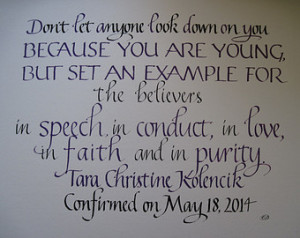 Don't let anyone look down on you
BECAUSE YOU ARE YOUNG,
BUT SET AN EXAMPLE FOR
the believers
in speech, in conduct, in love,
in faith and in purity.
Tara Christine Kolencik
Confirmed on May 18, 2014